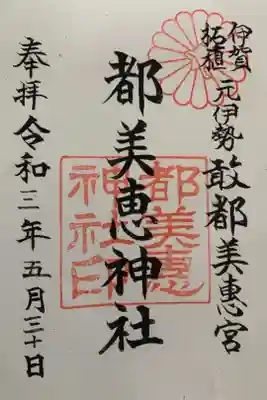 伊賀
拓植
元伊勢
敢都美恵宮
都美恵神社
都美恵
神社印
奉拝
令和三年五月三十日